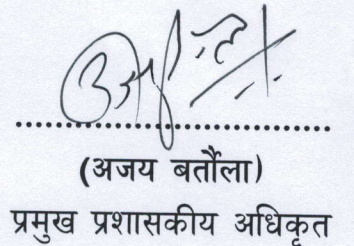 ....................................
(अजय बर्तौला)
प्रमुख प्रशासकीय अधिकृत